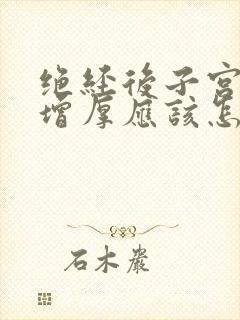 绝经後子宫
增厚應該怎
石木巖